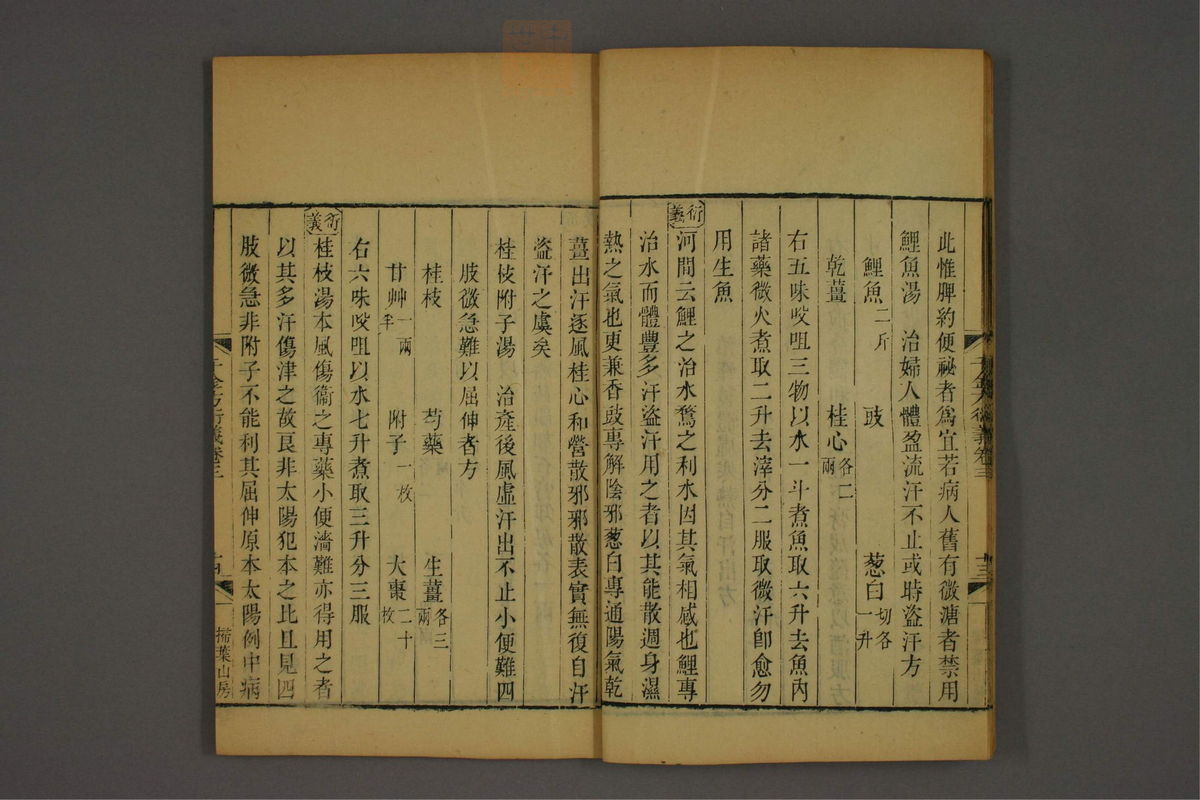 此惟脾約便祕者爲宜若病人舊有微溏者禁用
鯉魚湯　治婦人體盈流汗不止或時盜汗方
鯉魚二斤　豉　葱白切各一升
乾薑　桂心各二兩
右五味㕮咀三物以水一斗煮魚取六升去魚內
諸藥微火煮取二升去滓分二服取微汗卽愈勿
用生魚
衍義
河間云鯉之治水鶩之利水因其氣相感也鯉專
治水而體豐多汗盜汗用之者以其能散週身濕
熱之氣也更兼香豉專解陰邪葱白專通陽氣乾
薑出汗逐風桂心和營散邪邪散表實無復自汗
盜汗之虞矣
桂枝附子湯　治產後風虛汗出不止小便難四
肢微急難以屈伸者方
桂枝　芍藥　生薑各三兩
甘艸一兩半　附子一枚　大棗二十枚
右六味㕮咀以水七升煮取三升分三服
衍義
桂枝湯本風傷衞之專藥小便濇難亦得用之者
以其多汗傷津之故良非太陽犯本之比且見四
肢微急非附子不能利其屈伸原本太陽例中病
千金方衍義卷三
十四
掃葉山房